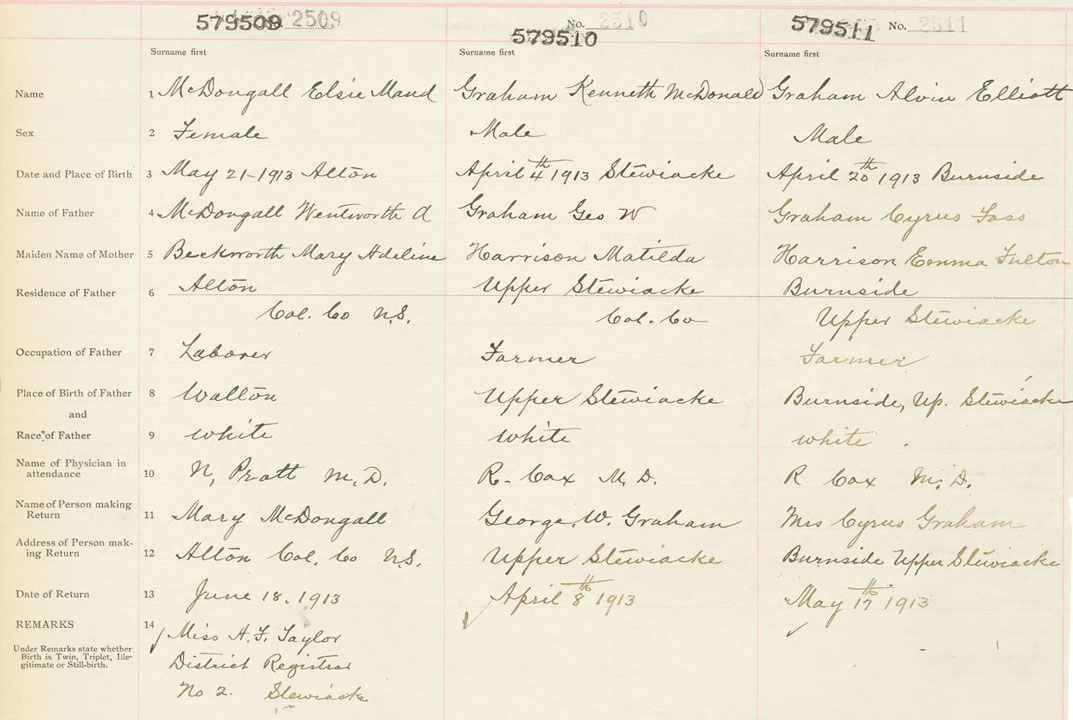 579509 2509 No. 2510 579510 579511 No. 2511
Surname first Surname first Surname first
Name 1 McDougall Elsie Maud Graham Kenneth McDonald Graham Alvin Elliott
Sex 2 Female Male Male
Date and Place of Birth 3 May 21-1913 Alton April 4th 1913 Stewiacke April 20th 1913 Burnside
Name of Father 4 McDougall Wentworth A Graham Geo W Graham Cyrus Foss
Maiden Name of Mother 5 Beckworth Mary Adeline Harrison Matilda Harrison Emma Fulton
Residence of Father 6 Alton Upper Stewiacke Burnside
Col. Co N.S. Col. Co Upper Stewiacke
Occupation of Father 7 Laborer Farmer Farmer
Place of Birth of Father 8 Walton Upper Stewiacke Burnside, Up. Stewiacke
and
Race of Father 9 white white white
Name of Physician in attendance 10 N, Pratt M.D. R. Cox M.D. R Cox M.D.
Name of Person making Return 11 Mary McDougall George, W. Graham Mrs Cyrus Graham
Address of Person mak-
ing Return 12 Alton Col. Co N.S. Upper Stewiacke Burnside Upper Stewiacke
Date of Return 13 June 18. 1913 April 8th 1913 May 17th 1913
REMARKS 14 Miss A. F. Taylor
Under Remarks state whether
Birth is Twin, Triplet, Ille-
gitimate or Still-birth.
District Registrar
No 2. Stewiacke